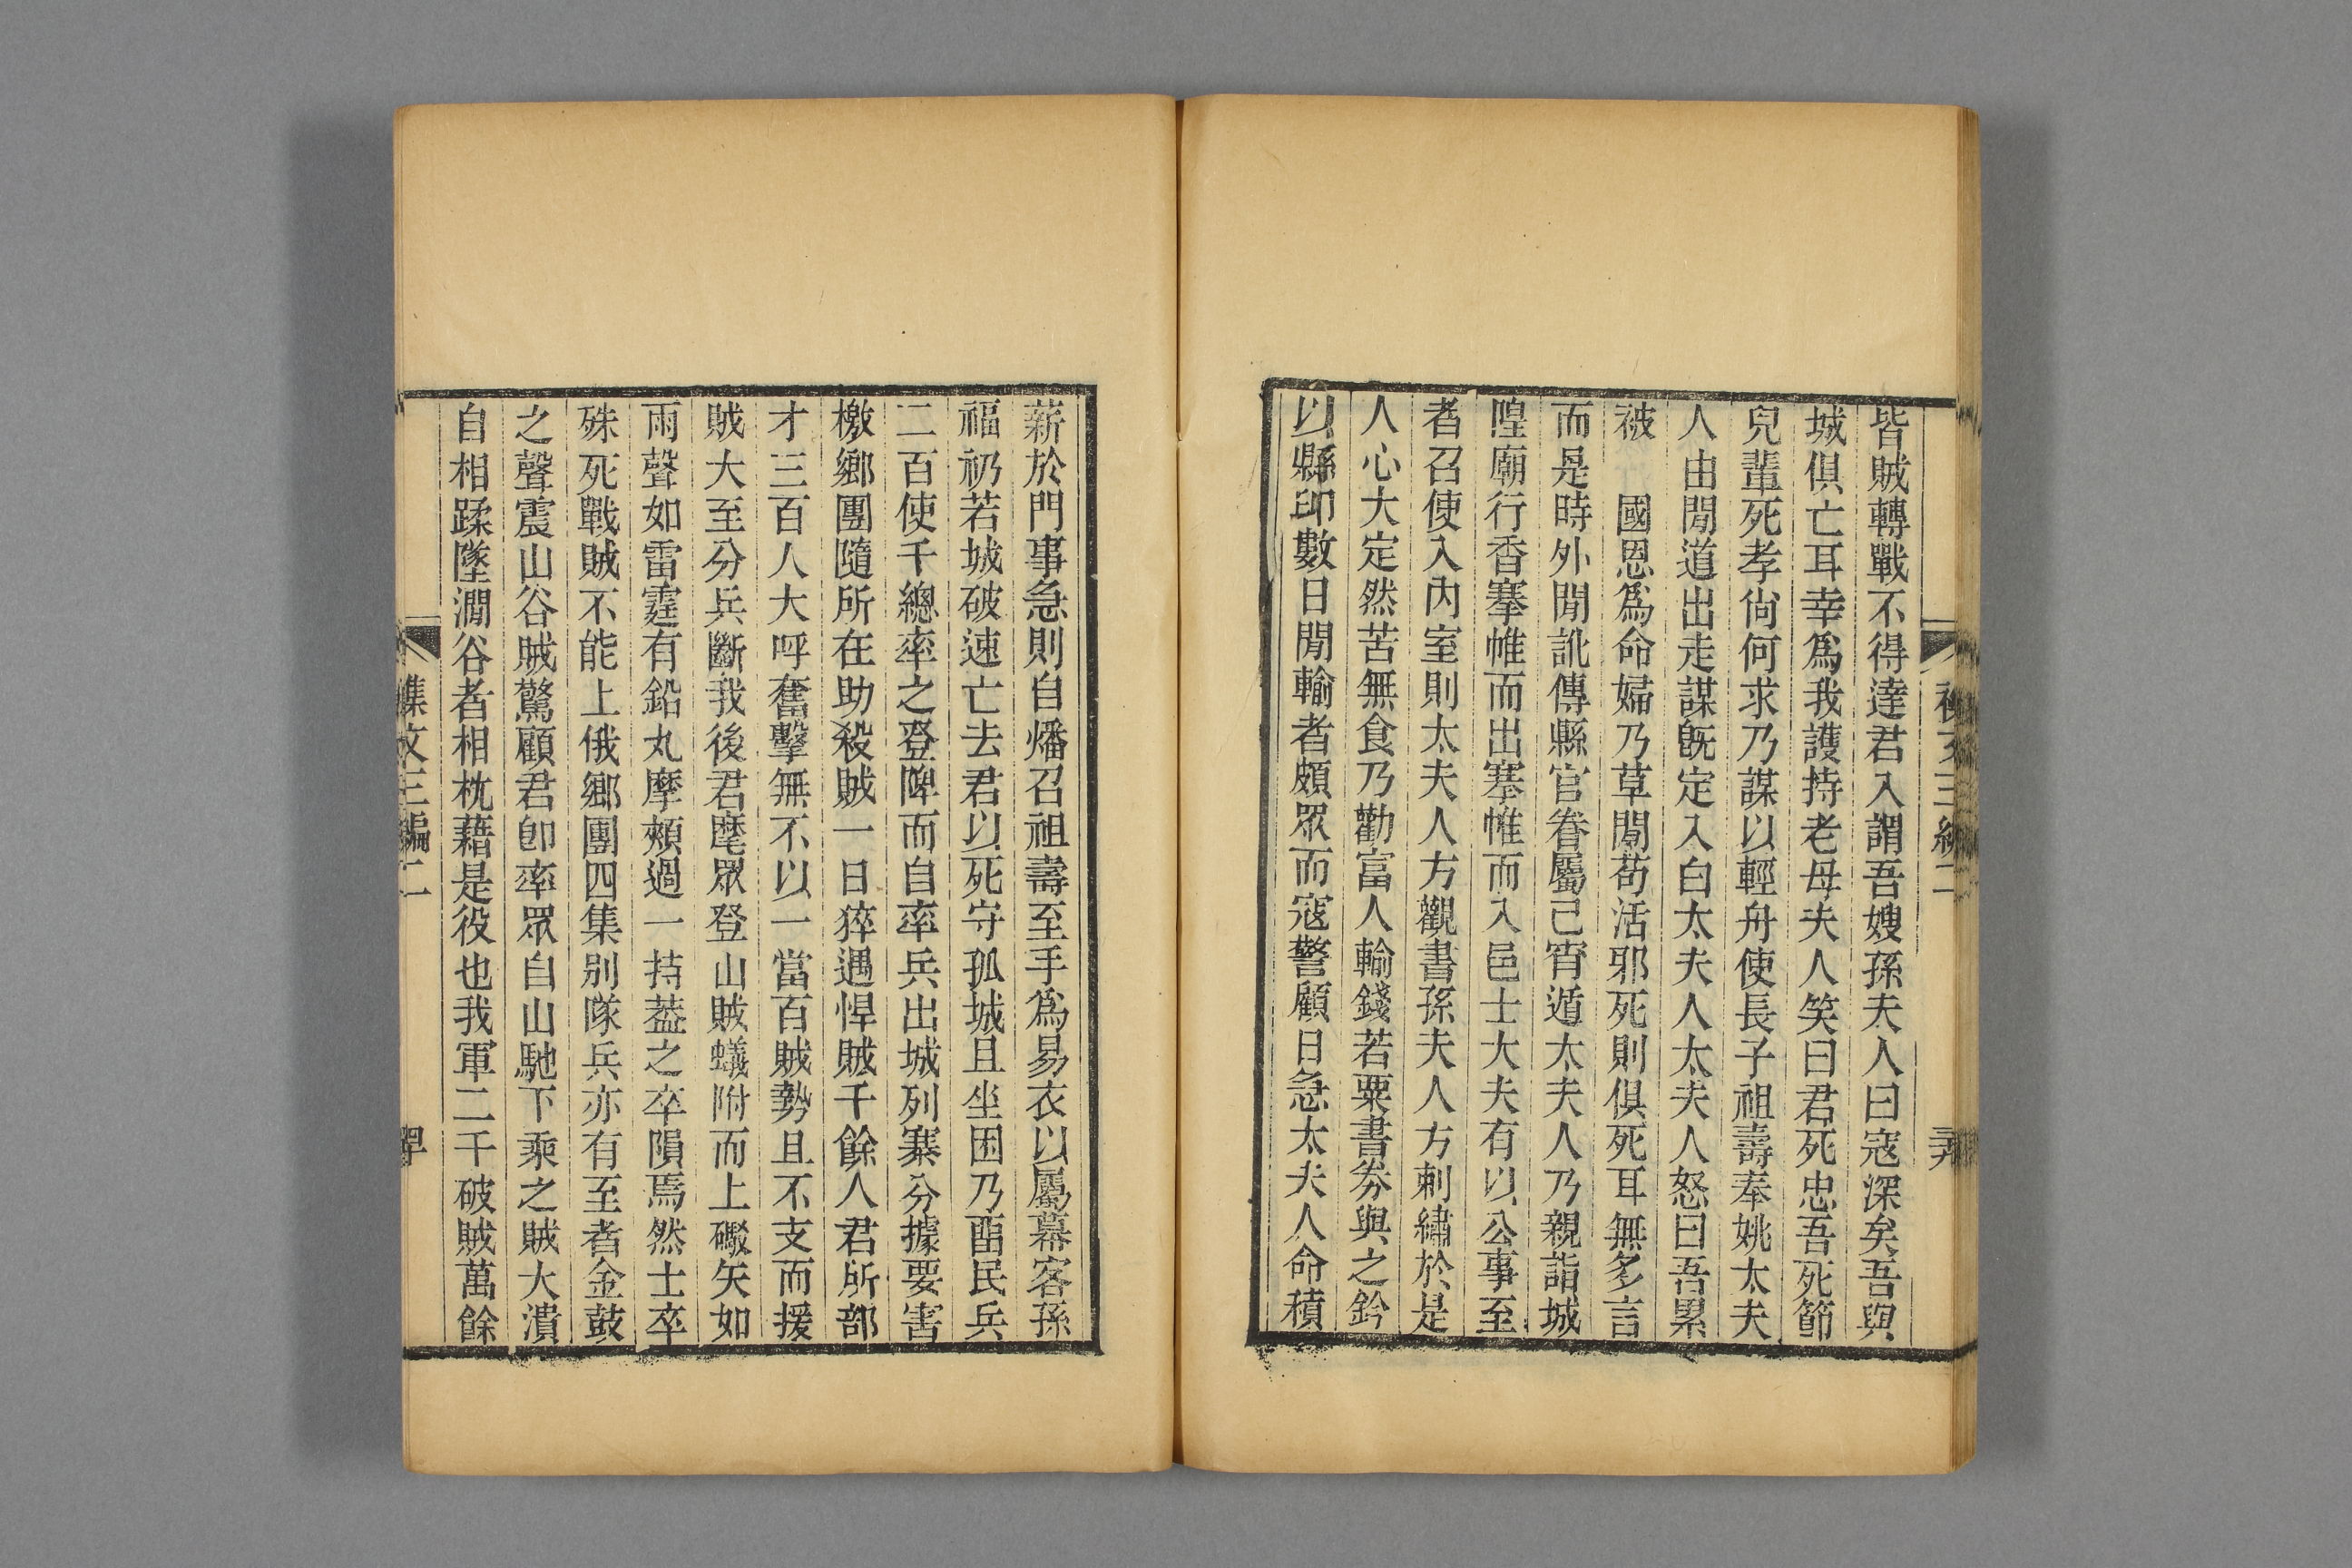 皆賊轉戰不得達君入謂吾嫂孫夫人曰寇深矣吾與
城俱亡耳幸爲我護持老母夫人笑曰君死忠吾死節
兒輩死孝尙何求乃謀以輕舟使長子祖壽奉姚太夫
人由閒道出走謀旣定入白太夫人太夫人怒曰吾累
被　國恩爲命婦乃草閒苟活邪死則俱死耳無多言
而是時外閒訛傳縣官眷屬已宵遁太夫人乃親詣城
隍廟行香搴帷而出搴帷而入邑士大夫有以公事至
者召使入內室則太夫人方觀書孫夫人方刺繡於是
人心大定然苦無食乃勸富人輸錢若粟書券與之鈐
以縣印數日閒輸者頗眾而寇警顧日急太夫人命積
薪於門事急則自燔召祖壽至手爲易衣以屬幕客孫
福礽若城破速亡去君以死守孤城且坐困乃畱民兵
二百使千總率之登陴而自率兵出城列寨分據要害
檄鄉團隨所在助殺賊一日猝遇悍賊千餘人君所部
才三百人大呼奮擊無不以一當百賊勢且不支而援
賊大至分兵斷我後君麾眾登山賊蟻附而上礮矢如
雨聲如雷霆有鉛丸摩頰過一持葢之卒隕焉然士卒
殊死戰賊不能上俄鄉團四集別隊兵亦有至者金鼓
之聲震山谷賊驚顧君卽率眾自山馳下乘之賊大潰
自相蹂墜澗谷者相枕藉是役也我軍二千破賊萬餘
襍文三編二